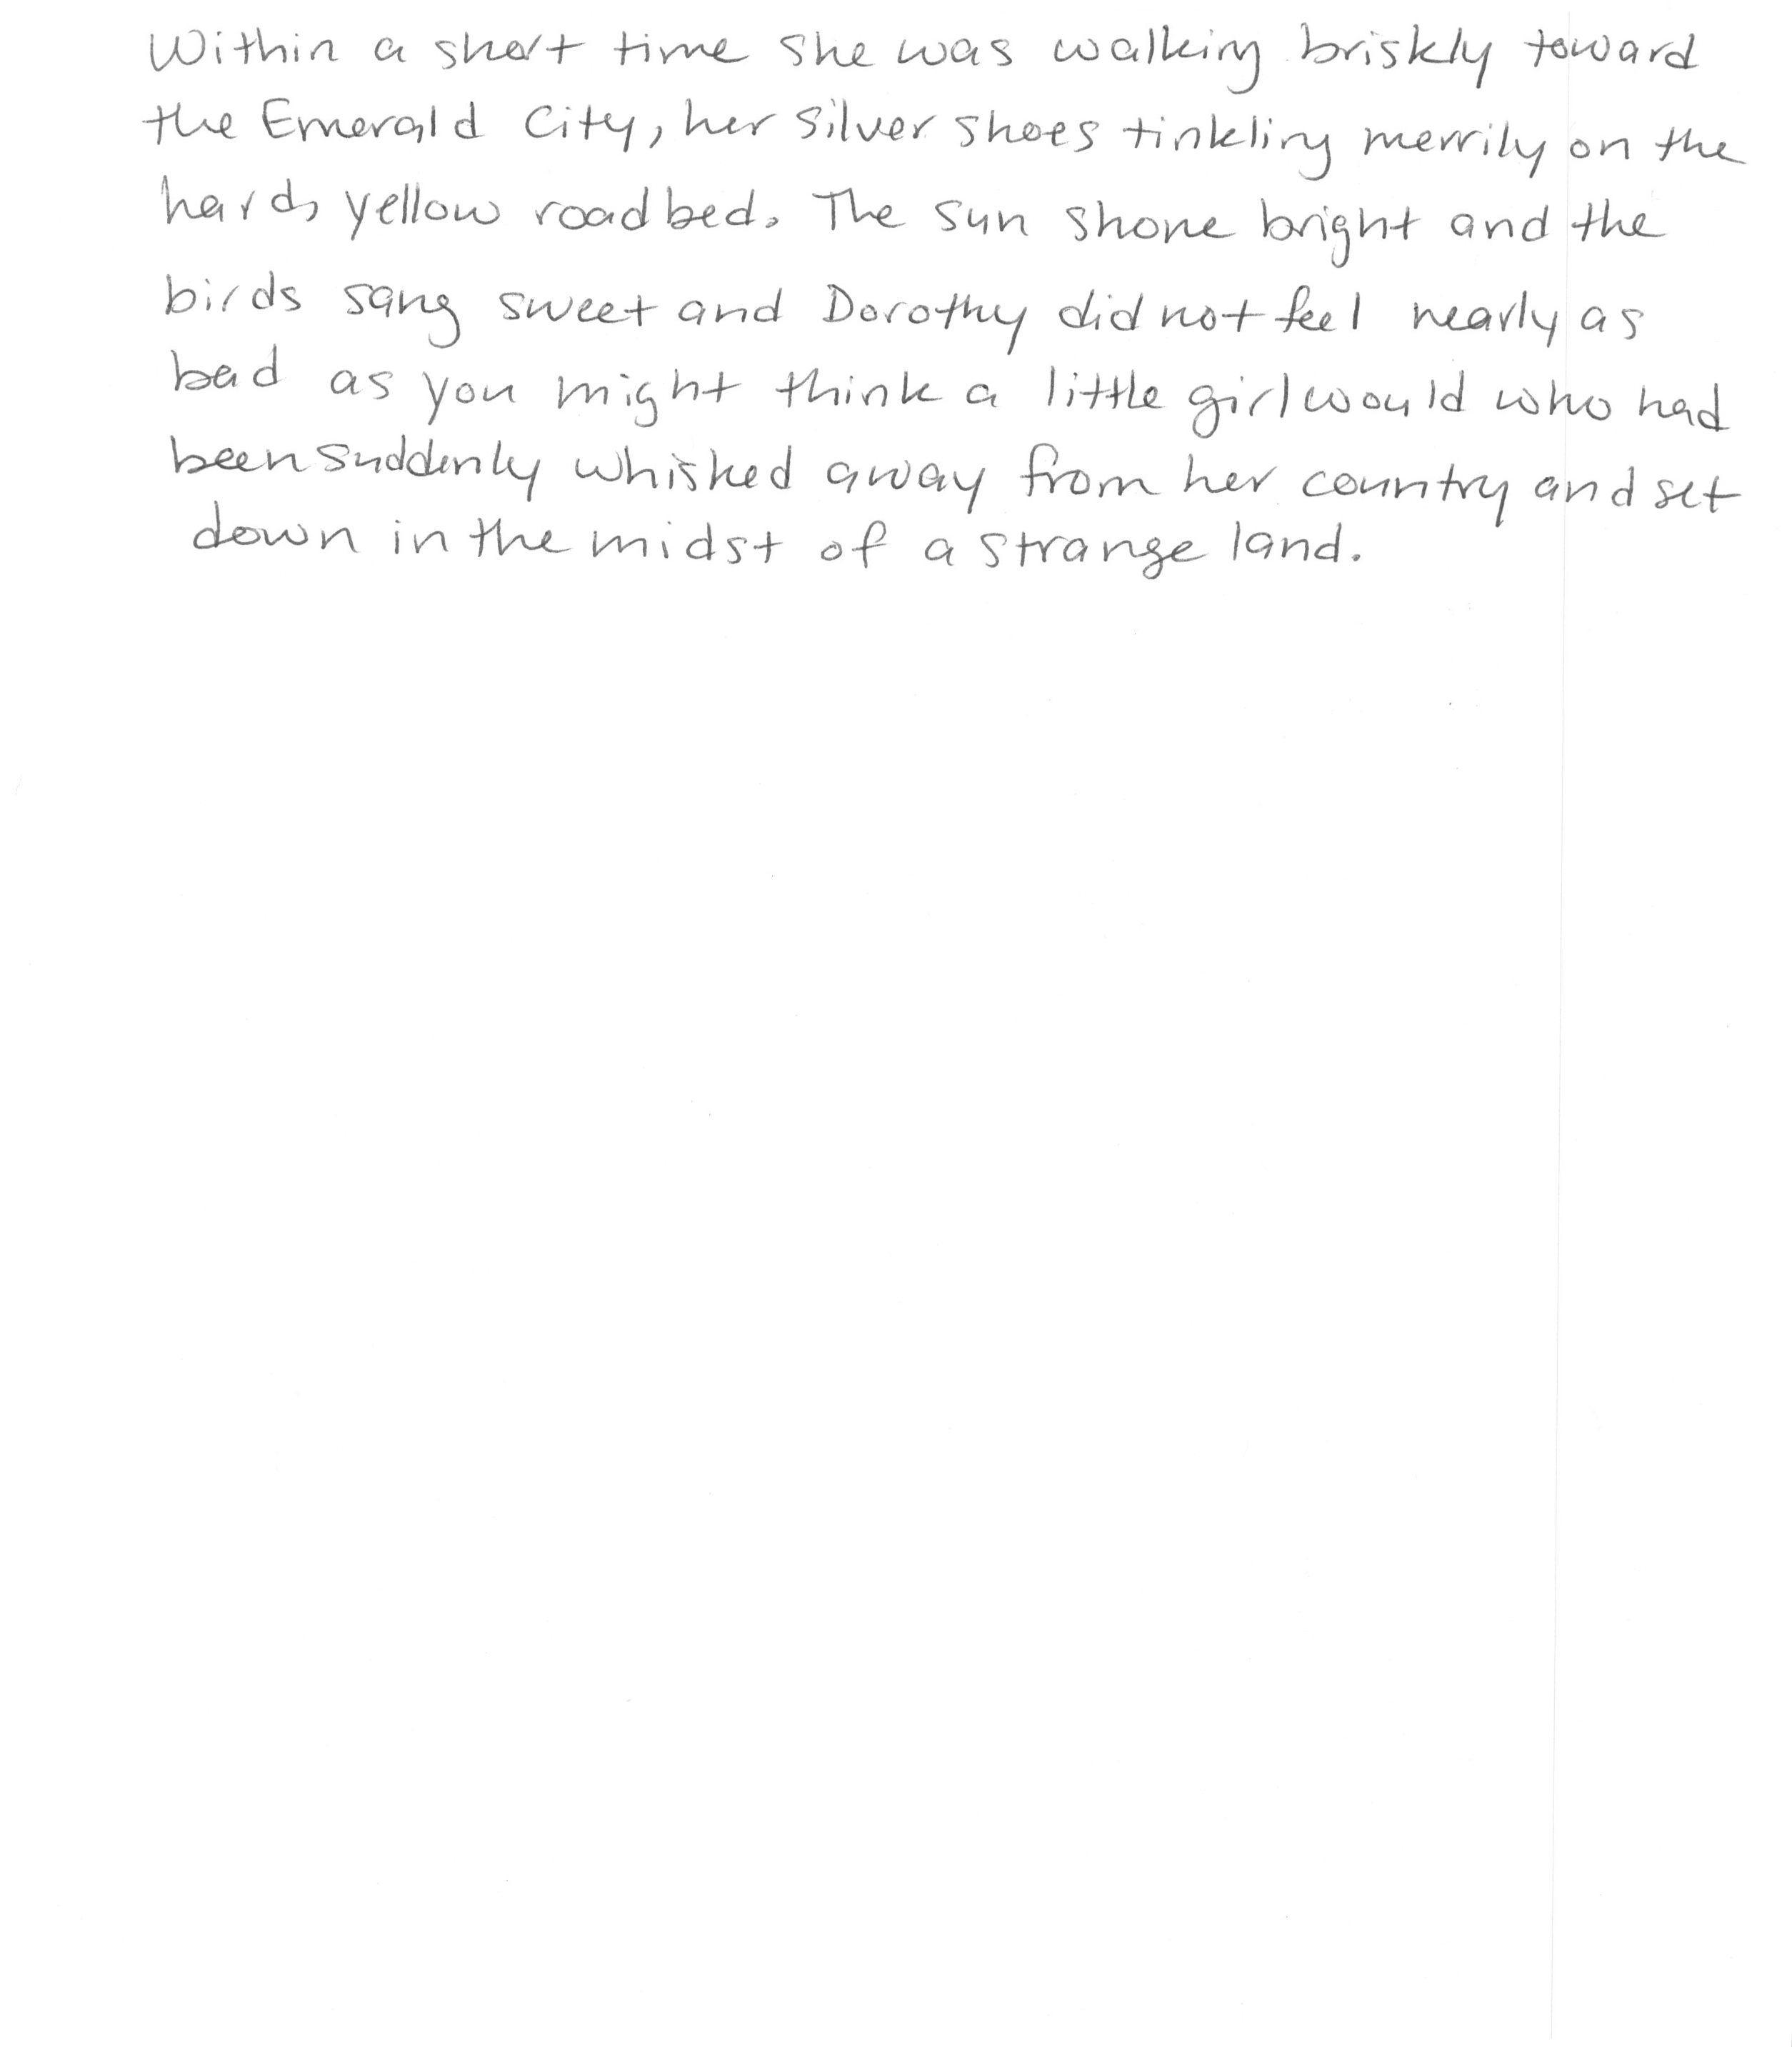 Within a short time she was walking briskly toward
the Emerald City, her silver shoes tinkling merrily on the
hard, yellow roadbed. The sun shone bright and the
birds sang sweet and Dorothy did not feel nearly as
bad as you might think a little girl would who had
been suddenly whisked away from her country and set
down in the midst of a strange land.